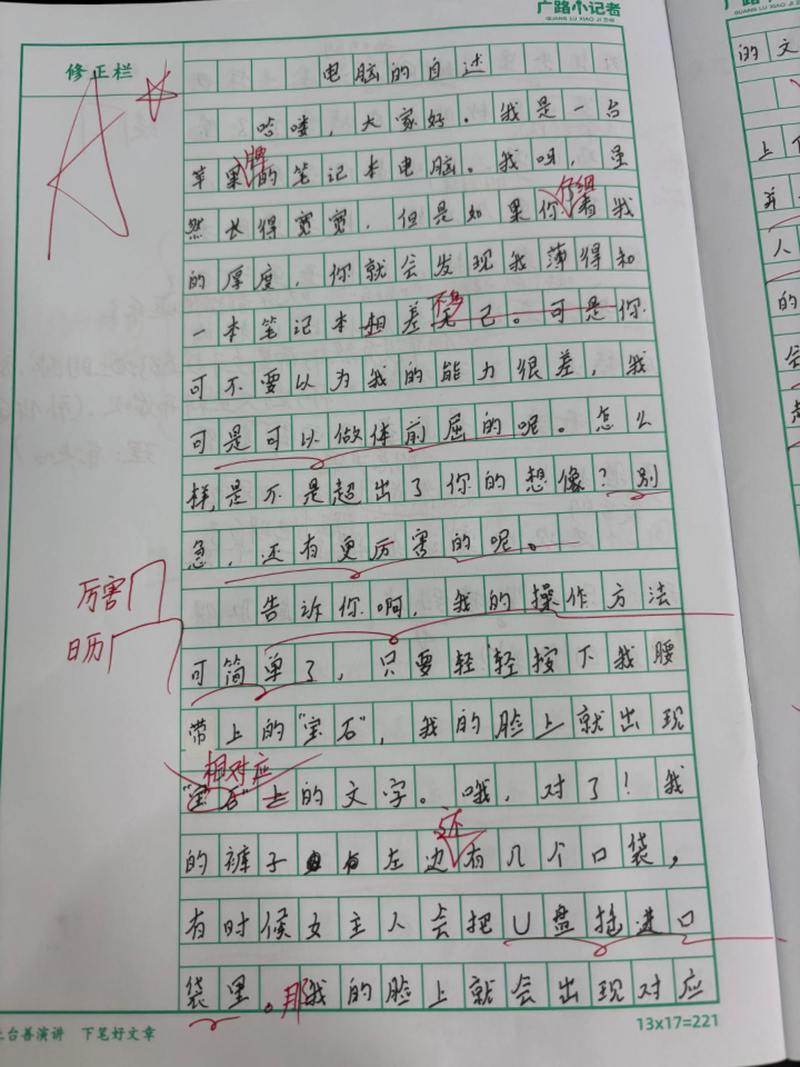 广路小记者
GUANG LU XIAO JI ZHE
修正栏
A
电脑的自述
哈喽，大家好。我是一台
牌
苹果的笔记本电脑。我呀，虽
仔细
然长得宽宽，但是如果你看我
的厚度，你就会发现我薄得和
不多
一本笔记本相差无己。可是你
可不要以为我的能力很差，我
可是可以做体前屈的呢。怎么
样，是不是超出了你的想像？别
急，还有更厉害的呢。
厉害
日历
告诉你啊，我的操作方法
可简单了，只要轻轻按下我腰
带上的“宝石”，我的脸上就出现
相对应
“宝石”上的文字。哦，对了！我
还
的裤子右左边有几个口袋，
有时候女主人会把U盘插进口
袋里。那我的脸上就会出现对应
上台善演讲 下笔好文章
13x17=221
广路小
GUANG LU XIAO
的文
上
并
人
的